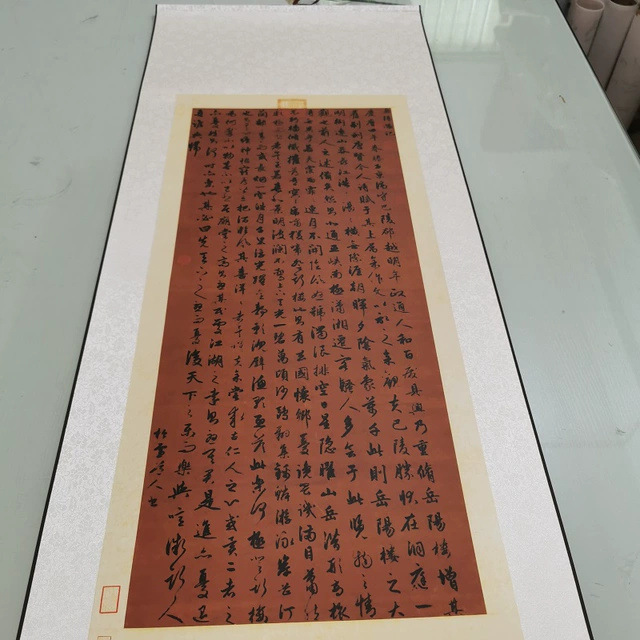 慶曆四年春滕子京謫守巴陵郡越明年政通人和百廢具興乃重脩岳陽樓增其
舊制刻唐賢今人詩賦于其上屬予作文以記之予觀夫巴陵勝狀在洞庭一
湖銜遠山吞長江浩浩湯湯橫無際涯朝暉夕陰氣象萬千此則岳陽樓之大
觀也前人之述備矣然則北通巫峽南極瀟湘遷客騷人多會于此覽物之情
得無異乎若夫霪雨霏霏連月不開陰風怒號濁浪排空日星隱曜山岳潛形商旅
不行檣傾楫摧薄暮冥冥虎嘯猿啼登斯樓也則有去國懷鄉憂讒畏譏滿目蕭然
感極而悲者矣至若春和景明波瀾不驚上下天光一碧萬頃沙鷗翔集錦鱗游泳岸芷汀
蘭郁郁青青而或長煙一空皓月千里浮光躍金靜影沉璧漁歌互答此樂何極登斯樓
也則有心曠神怡寵辱皆忘把酒臨風其喜洋洋者矣嗟夫予嘗求古仁人之心或異二者之
為何哉不以物喜不以己悲居廟堂之高則憂其民處江湖之遠則憂其君是進亦憂退
亦憂然則何時而樂耶其必曰先天下之憂而憂後天下之樂而樂歟噫微斯人
吾誰與歸